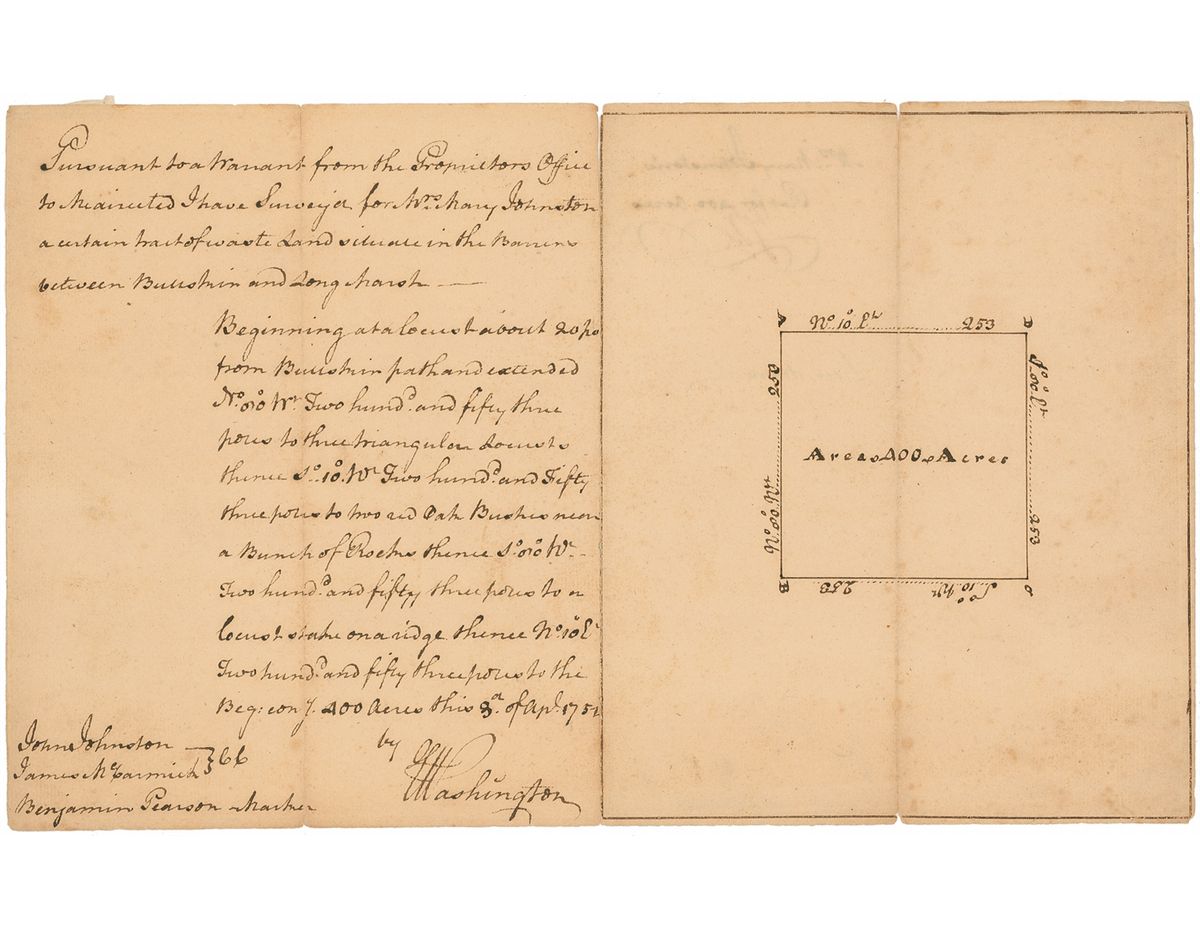 Pursuant to a Warrant from the Proprietors Office
to Me directed I have Survey'd for Mrs. Mary Johnston
a certain tract of waste Land situate in the Barrens
between Bullskin and Long Marsh
Beginning at a locust about 20 po
from Bullskin path and extended
No. 80° Wt. Two hund.d and fifty three
poles to three triangular Locusts
thence So. 10° Wt Two hund.d and Fifty
three poles to two red Oak Bushes near
a Bunch of Rocks thence So. 80° Et.
Two hund.d and fifty three poles to a
locust stake on a ridge thence No. 10° Et
Two hund.d and fifty three poles to the
Beg: con g. 400 Acres this 3d. of Apl. 1751
by
GWashington
John Johnston
James McCarmick } CC
Benjamin Pearson Marker
A No 10° Et 253 D
253
No 80° Wt
So 80° Et
253
Area 400 Acres
B 253 So 10° Wt C